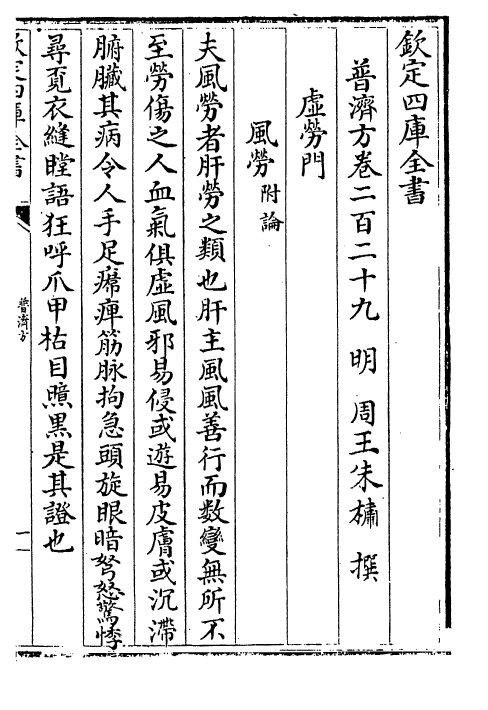 欽定四庫全書
普濟方卷二百二十九 明 周王朱橚 撰
虛勞門
風勞附論
夫風勞者肝勞之類也肝主風風善行而數變無所不
至勞傷之人血氣俱虛風邪易侵或遊易皮膚或沉滯
腑臟其病令人手足𤸷痺筋脉拘急頭旋眼暗弩怒驚悸
尋覓衣縫瞠語狂呼爪甲枯目黶黒是其證也
欽定四庫全書
普濟方
一